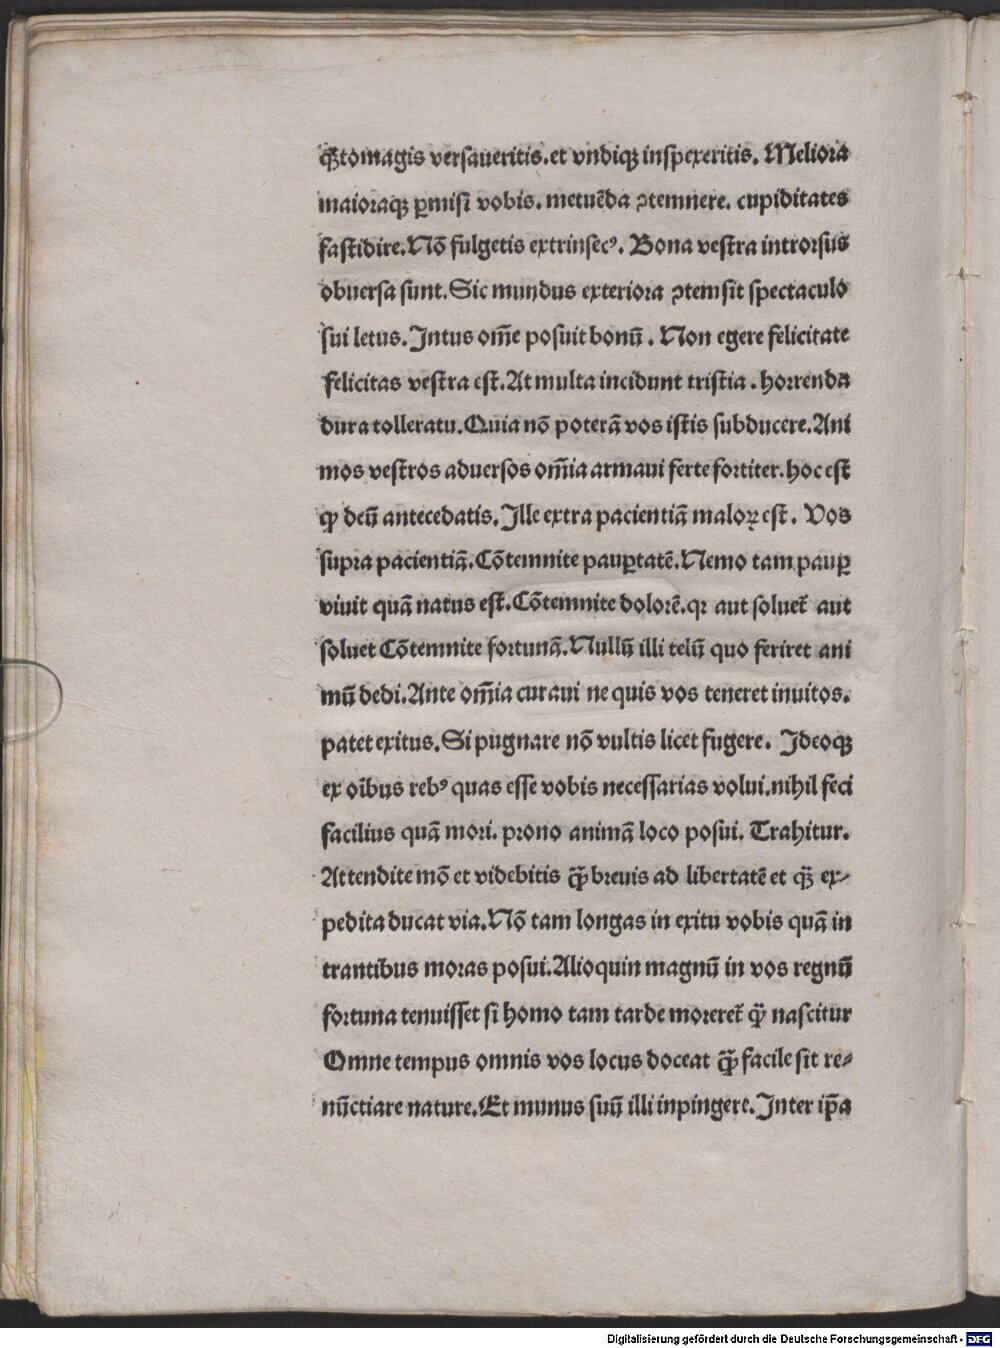 q̃ꝫtomagis versaueritis.et vndiqꝫ inspexeritis. Meliora
maioraqꝫ ꝑmisi vobis. metuẽda ꝯtemnere. cupiditates
fastidire.Nõ fulgetis extrinsecꝰ. Bona vestra introrsus
obuersa sunt.Sic mundus exteriora ꝯtemsit spectaculo
sui letus.Intus om̃e posuit bonũ. Non egere felicitate
felicitas vestra est.At multa incidunt tristia. horrenda
dura tolleratu.Quia nõ poterã vos istis subducere.Ani
mos vestros aduersos om̃ia armaui ferte fortiter.hoc est
qͥ deũ antecedatis.Ille extra pacientiã maloꝝ est. Vos
supra pacientiã.Cõtemnite pauꝑtatẽ.Nemo tam pauꝑ
viuit quã natus est.Cõtemnite dolorẽ.qꝛ aut soluet̃ aut
soluet Cõtemnite fortunã.Nullũ illi telũ quo feriret ani
mũ dedi.Ante om̃ia curaui ne quis vos teneret inuitos.
patet exitus.Si pugnare nõ vultis licet fugere. Ideoqꝫ
ex oĩbus rebꝰ quas esse vobis necessarias volui.nihil feci
facilius quã mori. prono animã loco posui. Trahitur.
Attendite mõ et videbitis q̃ꝫ breuis ad libertatẽ et q̃ꝫ ex⸗
pedita ducat via.Nõ tam longas in exitu vobis quã in
trantibus moras posui.Alioquin magnũ in vos regnũ
fortuna tenuisset si homo tam tarde moreret̃ q̃ꝫ nascitur
Omne tempus omnis vos locus doceat q̃ꝫ facile sit re⸗
nũctiare nature.Et munus suũ illi inpingere.Inter ip̃a
Digitalisierung gefördert durch die Deutsche Forschungsgemeinschaft - DFG